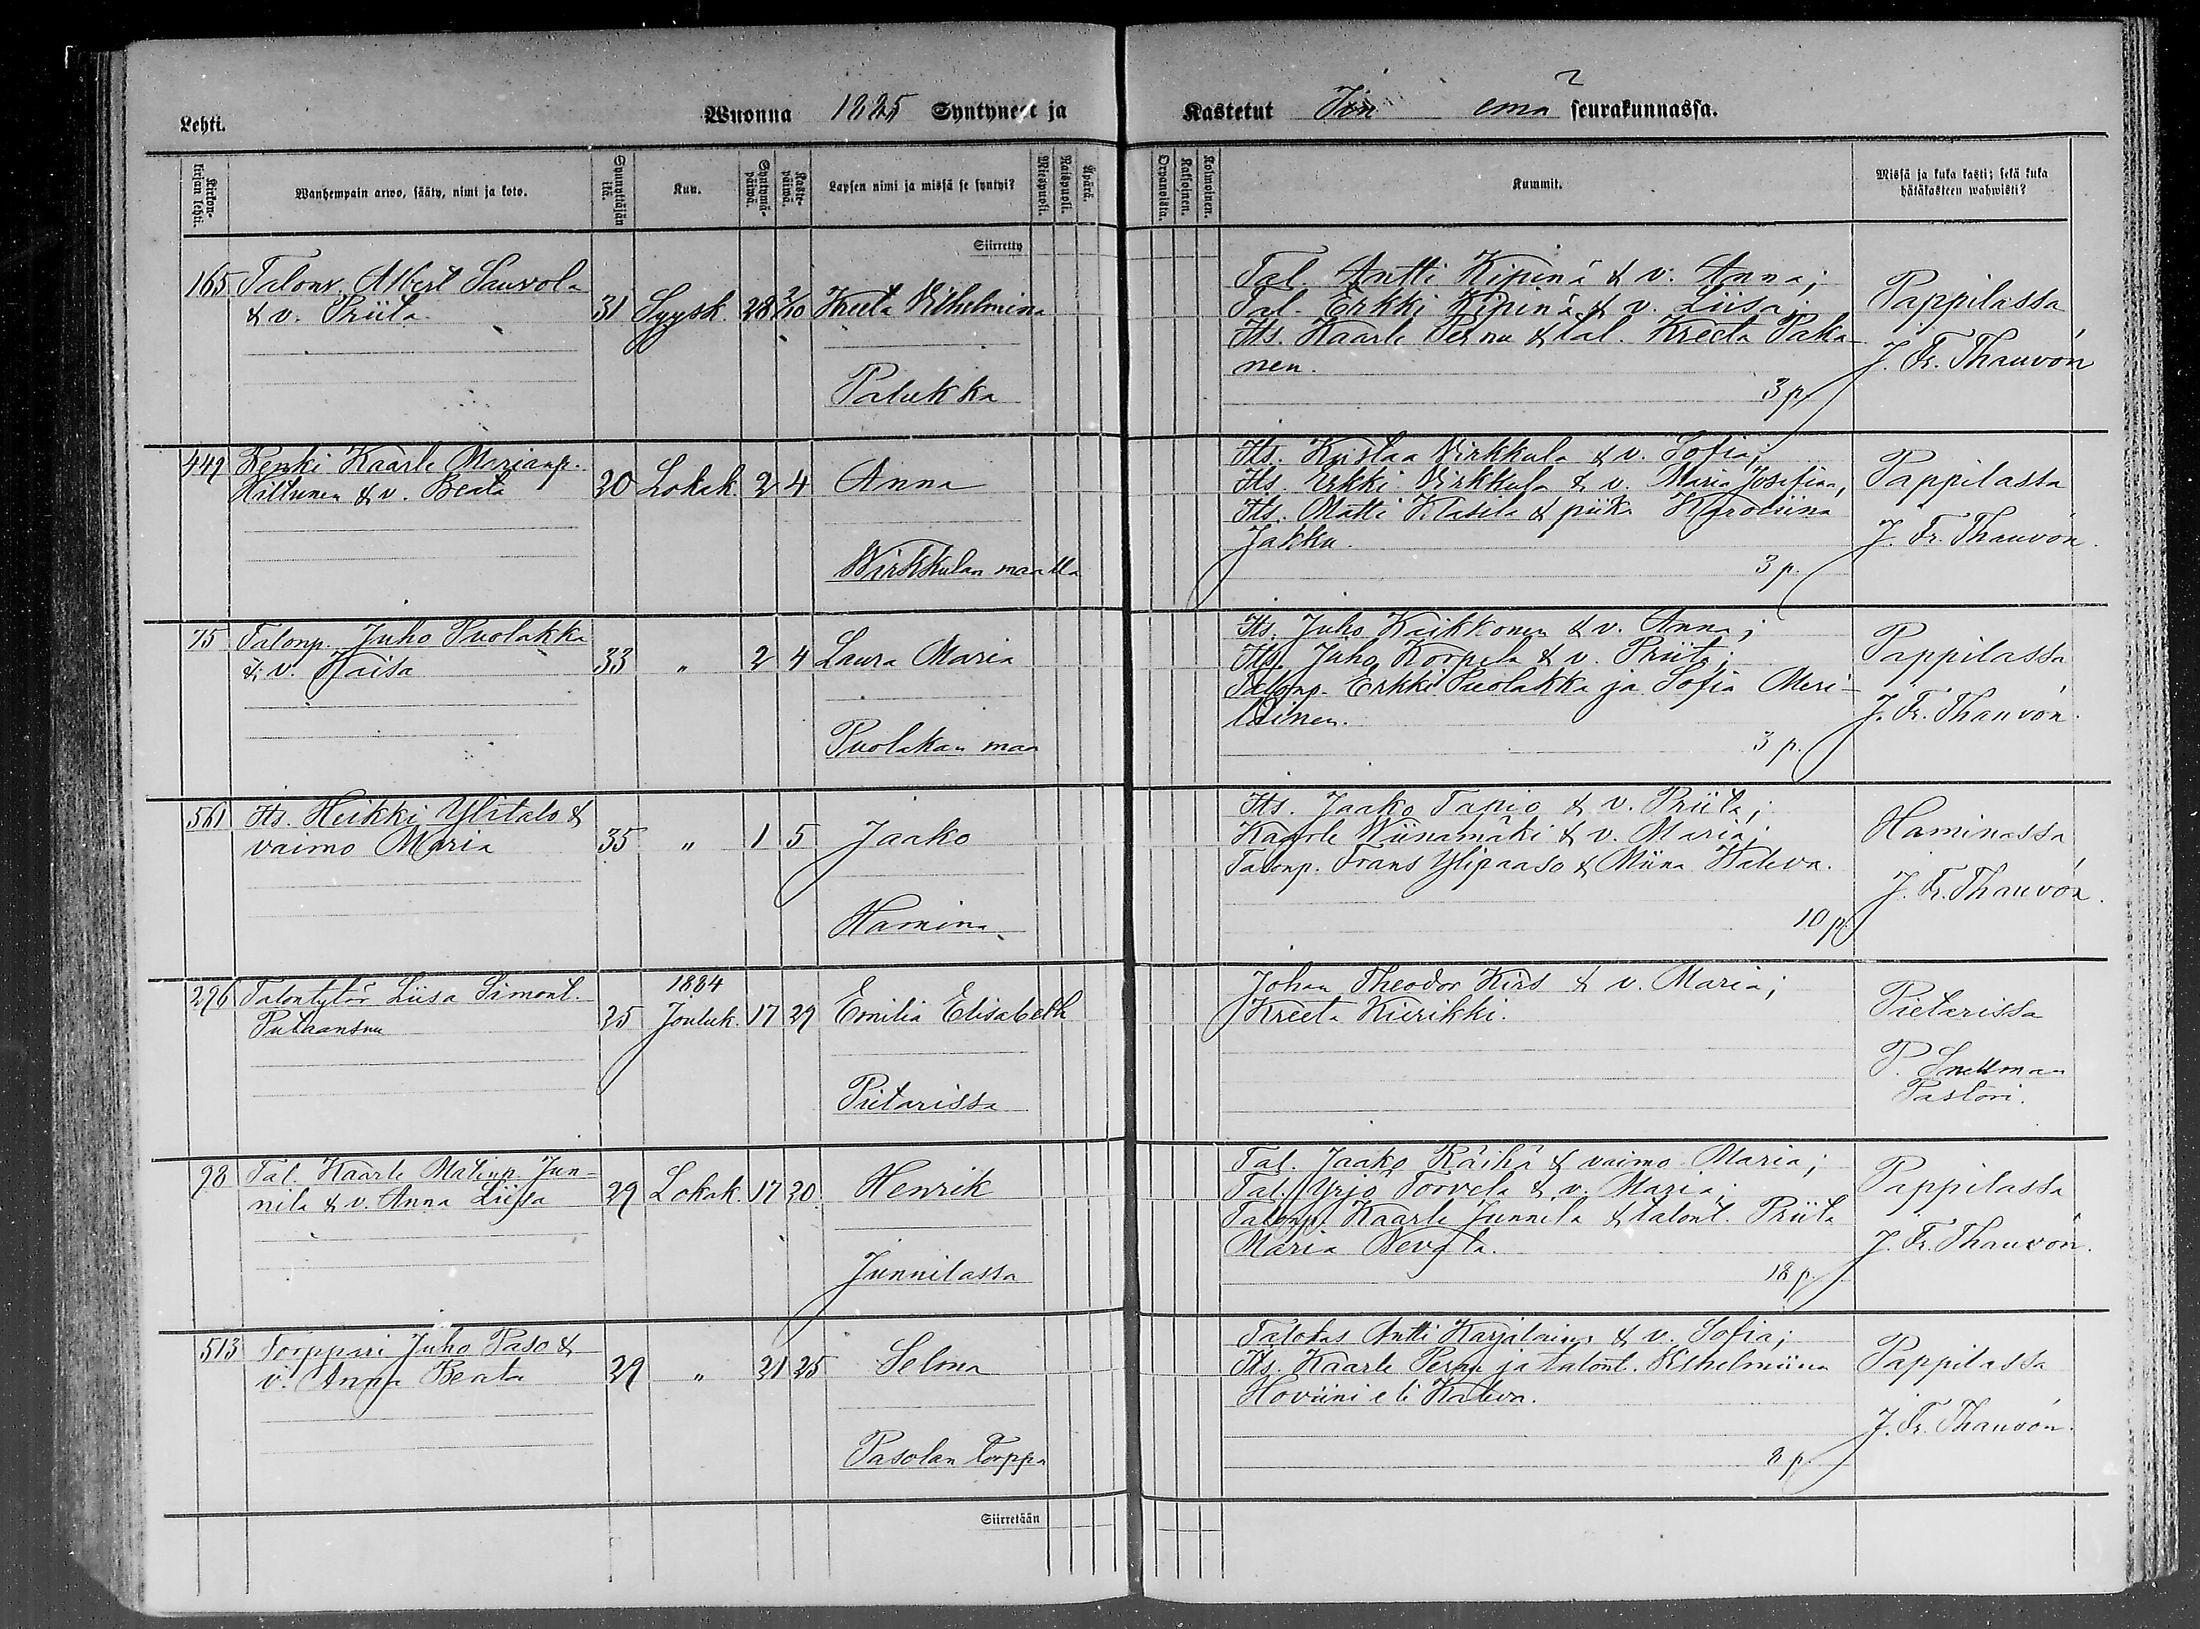 Lehti.
Wuonna 1885 Syntyneet ja
Kastetut Iin emä seurakunnassa.
Ripinkirjan lehti.
Wanhempain arwo, sääty, nimi ja koto.
Synnyttäjän ikä.
Kuu.
Syntymä-päiwä.
Kaste-päiwä.
Lapsen nimi ja missä se syntyi?
Miespuoli.
Waispuoli.
Äpärä.
Orpanoista.
Kaksoinen.
Kolmoinen.
Kummit.
Missä ja kuka kasti; sekä kuka
hätäkasteen wahwisti?
Siirretty
165 Talonp. Albert Sauvola
& v. Priita 31 Syysk. 28 2/10 Kreeta Vilhelmina
Palukka
Tal. Antti Kipinä & v. Anna;
Tal. Erkki Kipinä & v. Liisa;
Its. Kaarle Pernu & tal. Kreeta Paka-
nen.
3 p.
Pappilassa
J. Fr. Thauvón
449 Renki Kaarle Marianp.
Hiltunen & v. Beata 20 Lokak. 2 4 Anna
Wirkkulan maalla
Its. Kustaa Virkkula & v. Sofia;
Its. Erkki Virkkula & v. Maria Josefina,
Its. Matti Klasila & piika Karoliina
Jakku.
3 p.
Pappilassa
J. Fr. Thauvón.
75 Talonp. Juho Puolakka
& v. Kaisa 33 " 2 4 Laura Maria
Puolakan maa
Its. Juho Kaikkonen & v. Anna;
Its. Juho Korpela & v. Priita;
Talonp. Erkki Puolakka ja Sofia Meri-
läinen.
3 p.
Pappilassa
J. Fr. Thauvón.
561 Its. Heikki Ylitalo &
vaimo Maria 35 " 1 5 Jaako
Hamina
Its. Jaako Tapio & v. Priita;
Kaarle Wiinamäki & v. Maria;
Talonp. Frans Ylipaaso & Miina Kaleva.
10 p.
Haminassa
J. Fr. Thauvón.
296 Talontytör Liisa Simont.
Putaansuu 25 1884 Jouluk. 17 29 Emilia Elisabeth
Pietarissa
Johan Theodor Kirs & v. Maria;
Kreeta Kierikki.
Pietarissa
P. Snellman
Pastori.
98 Tal. Kaarle Matinp. Jun-
nila & v. Anna Liisa 29 Lokak. 17 20 Henrik
Junnilassa
Tal. Jaako Räihä & vaimo Maria;
Tal. Yrjö Torvela & v. Maria;
Talonp. Kaarle Junnila & talont. Priita
Maria
18 p.
Pappilassa
J. Fr. Thauvón.
513 Torppari Juho Paso &
v. Anna Beata 29 " 21 25 Selma
Pasolan Torppa
Talokas Antti Karjalainen & v. Sofia;
Its. Kaarle Pernu ja talont. Vilhelmiina
Hoviini eli Kaleva.
8 p.
Pappilassa
J. Fr. Thauvón.
Siirretään